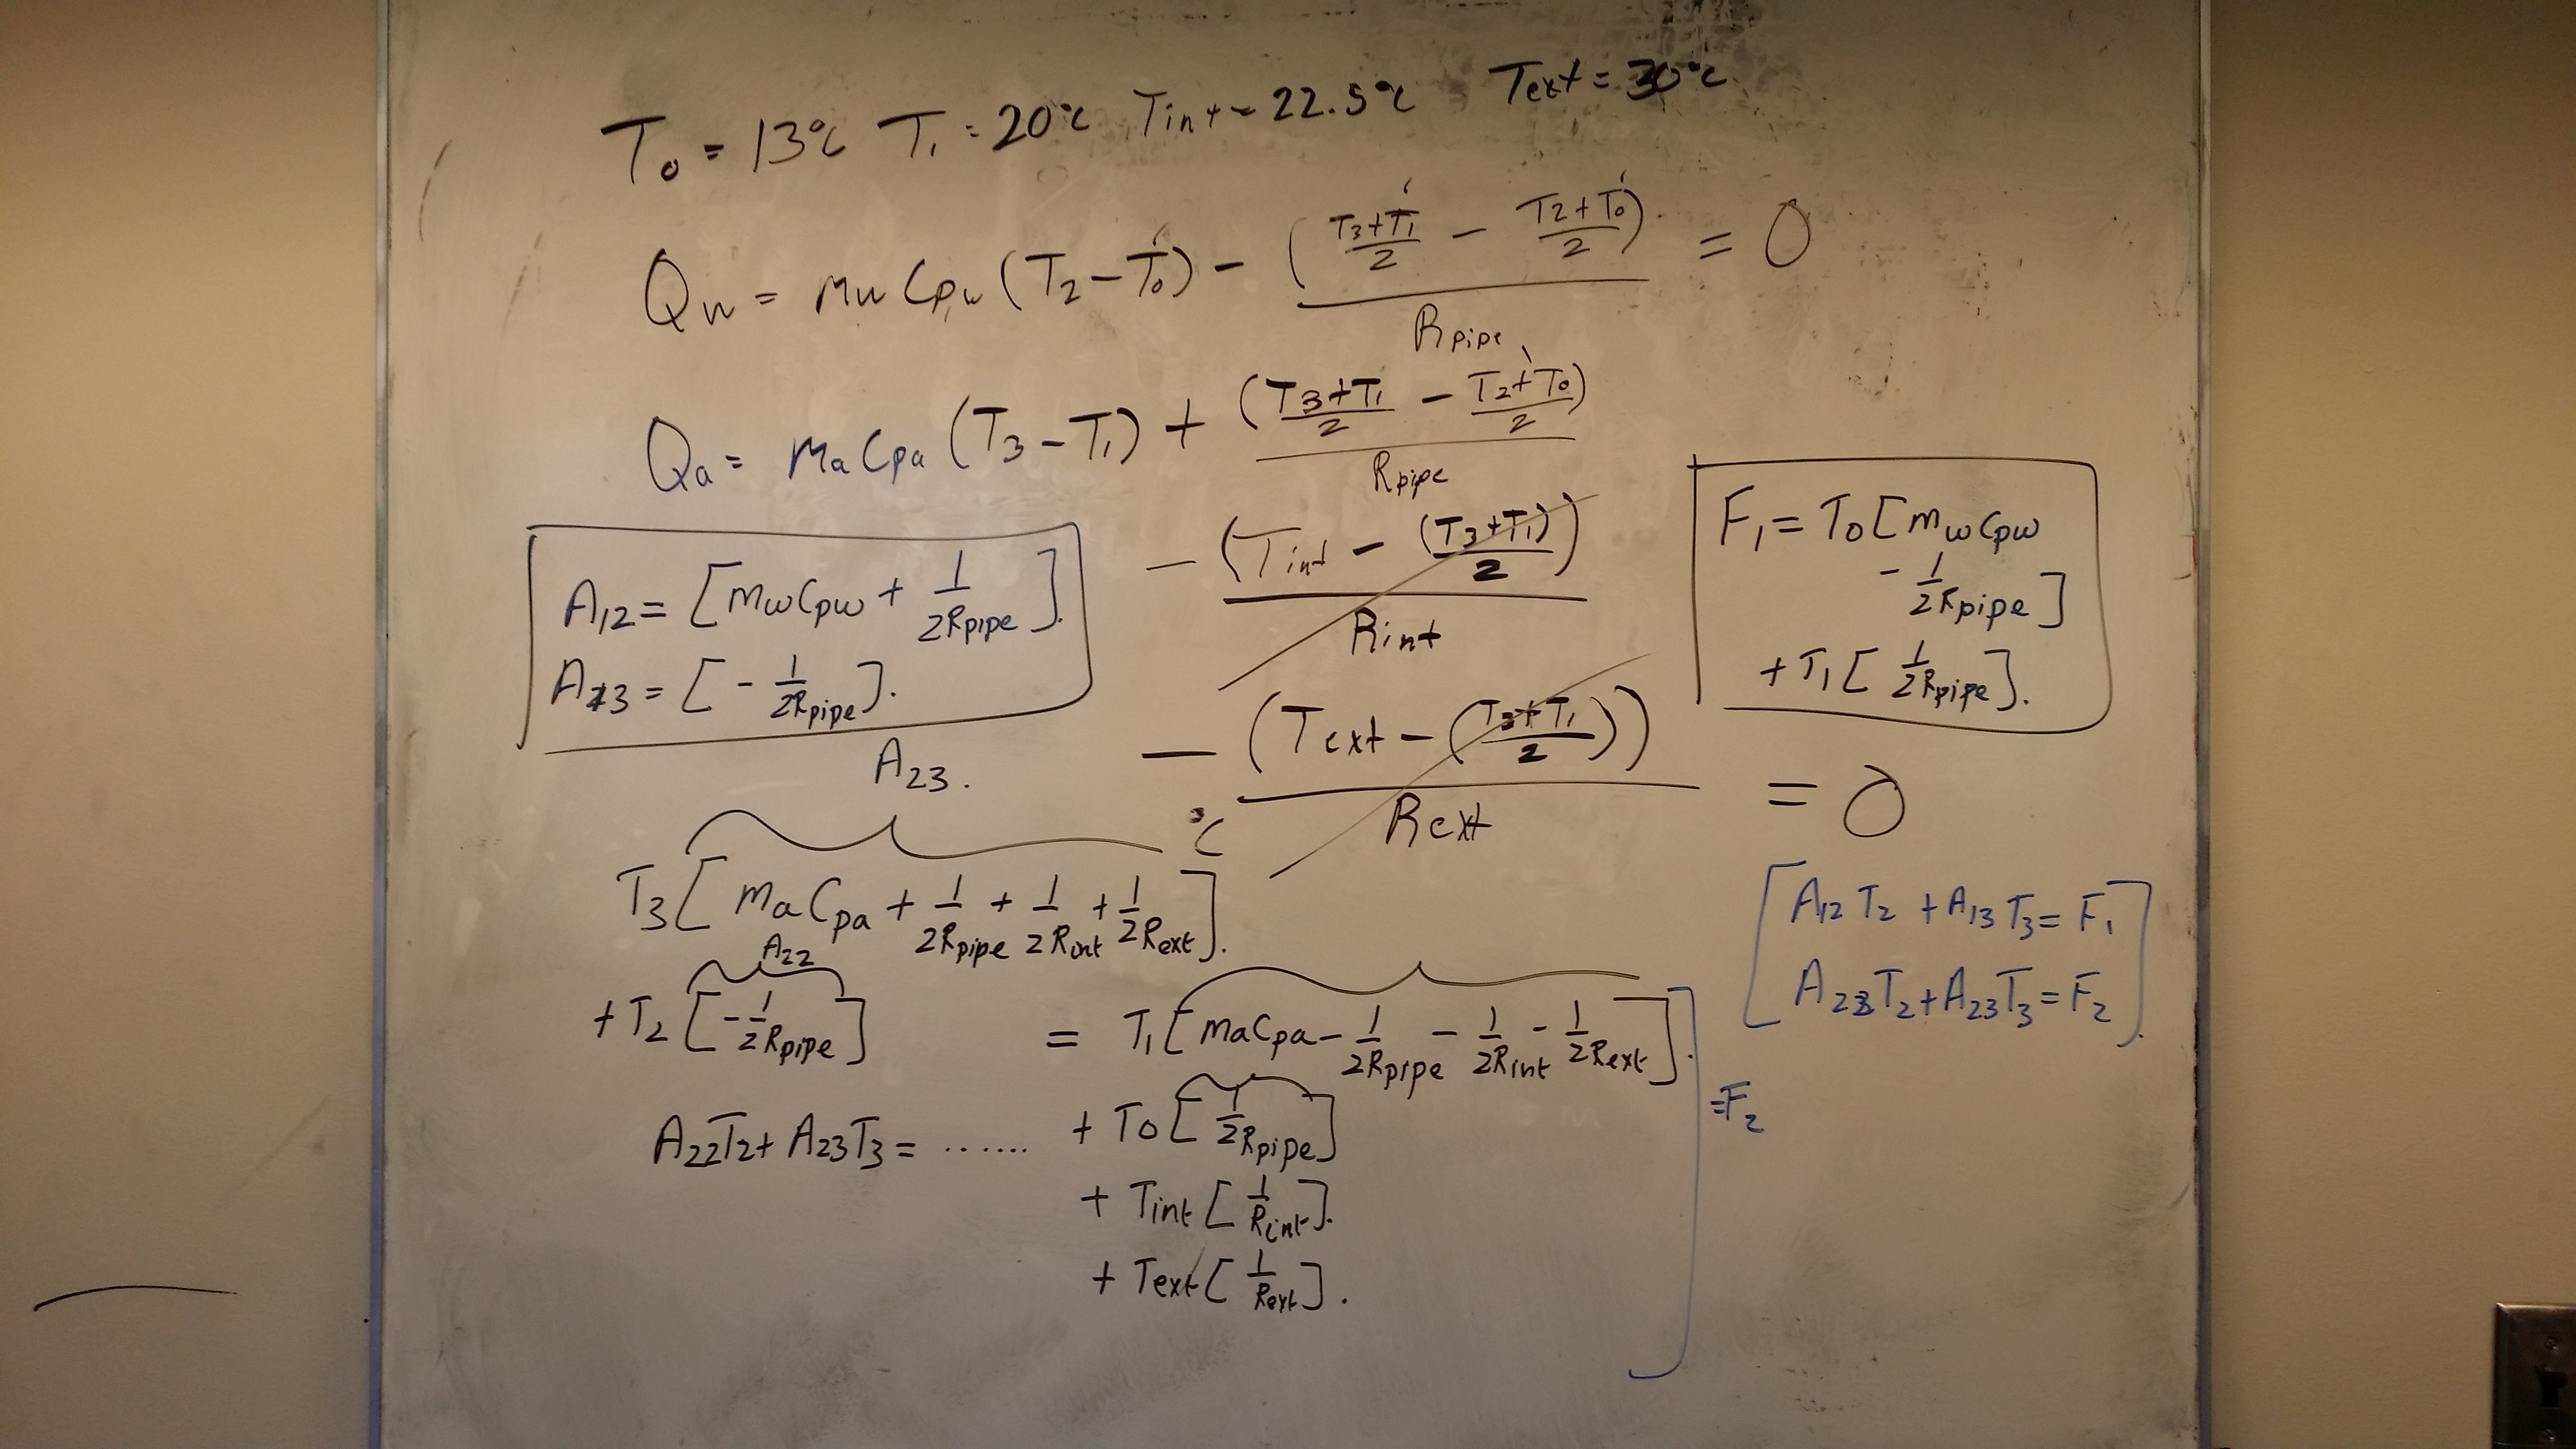 T₀ = 13°C T₁ = 20°C Tint = 22.5°C Text = 30°C
Qw = mw Cpw (T₂ − T₀) − ((T₃+T₁)/2 − (T₂+T₀)/2) / Rpipe = 0
Qa = ma Cpa (T₃ − T₁) + ((T₃+T₁)/2 − (T₂+T₀)/2) / Rpipe
− (Tint − (T₃+T₁)/2) / Rint
− (Text − ((T₃+T₁)/2)) / Rext = 0
A₁₂ = [mwCpw + 1/2Rpipe].
A₁₃ = [− 1/2Rpipe].
F₁ = T₀ [mwCpw
− 1/2Rpipe]
+ T₁ [1/2Rpipe].
A₂₃.
°C
T₃ [maCpa + 1/2Rpipe + 1/2Rint + 1/2Rext].
A₂₂
+ T₂ [− 1/2Rpipe] = T₁ [maCpa − 1/2Rpipe − 1/2Rint − 1/2Rext].
A₂₂T₂ + A₂₃T₃ = ....... + T₀ [1/2Rpipe]
+ Tint [1/Rint].
+ Text [1/Rext].
= F₂
[A₁₂T₂ + A₁₃T₃ = F₁
A₂₂T₂ + A₂₃T₃ = F₂].